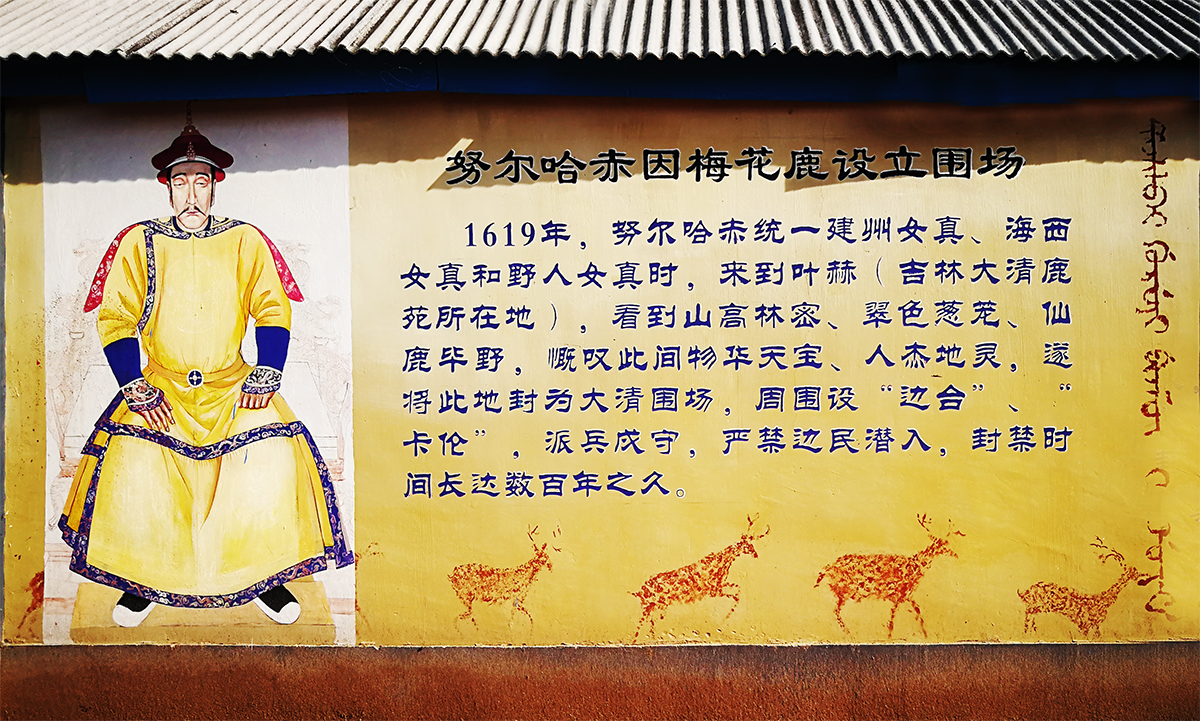 努尔哈赤因梅花鹿设立围场
1619年，努尔哈赤统一建州女真、海西
女真和野人女真时，来到叶赫（吉林大清鹿
苑所在地），看到山高林密、翠色葱茏、仙
鹿毕野，慨叹此间物华天宝、人杰地灵，遂
将此地封为大清围场，周围设“边台”、“
卡伦”，派兵戍守，严禁边民潜入，封禁时
间长达数百年之久。